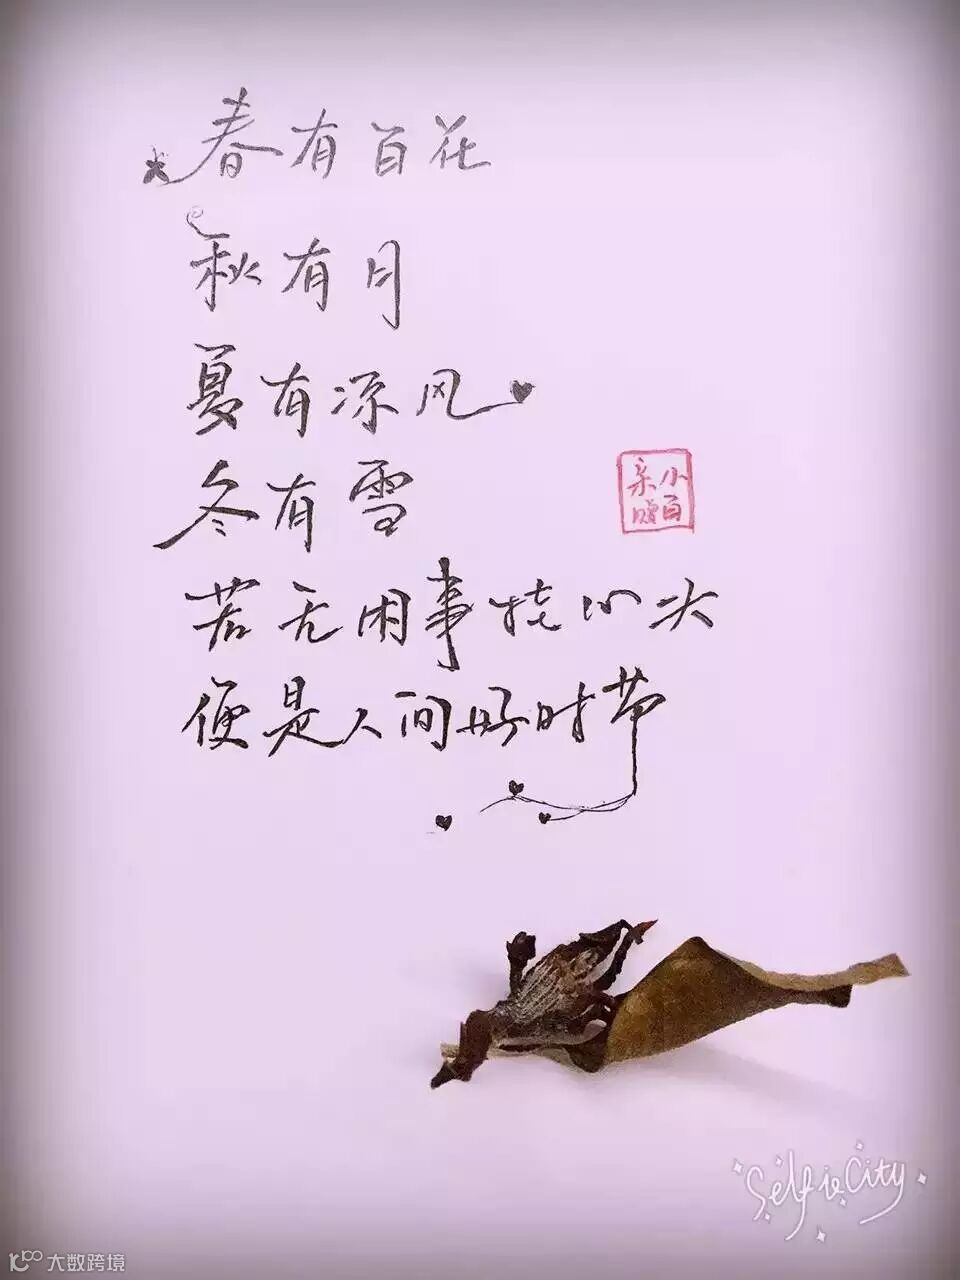 春有百花
秋有月
夏有凉风
冬有雪
小百
若无闲事挂心头
便是人间好时节
SelfieCity
大数跨境